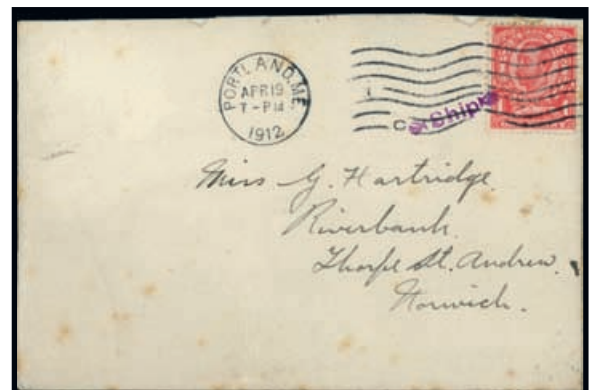 PORTLAND, ME
APR 19
7 - P M
1912
Ship
Miss G. Hartridge.
Riverbank.
Thorpe St. Andrew.
Norwich.